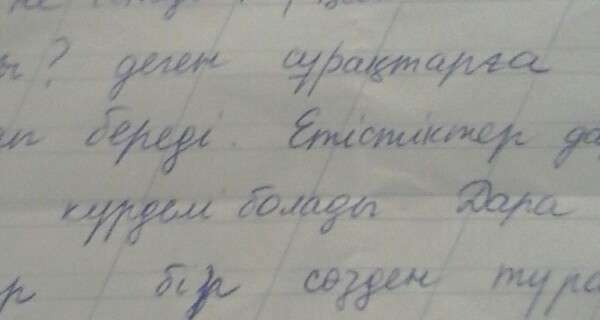 ? деген сұрақтарға
береді. Етістіктер да
күрделі болады Дара
р бір сөзден тұра